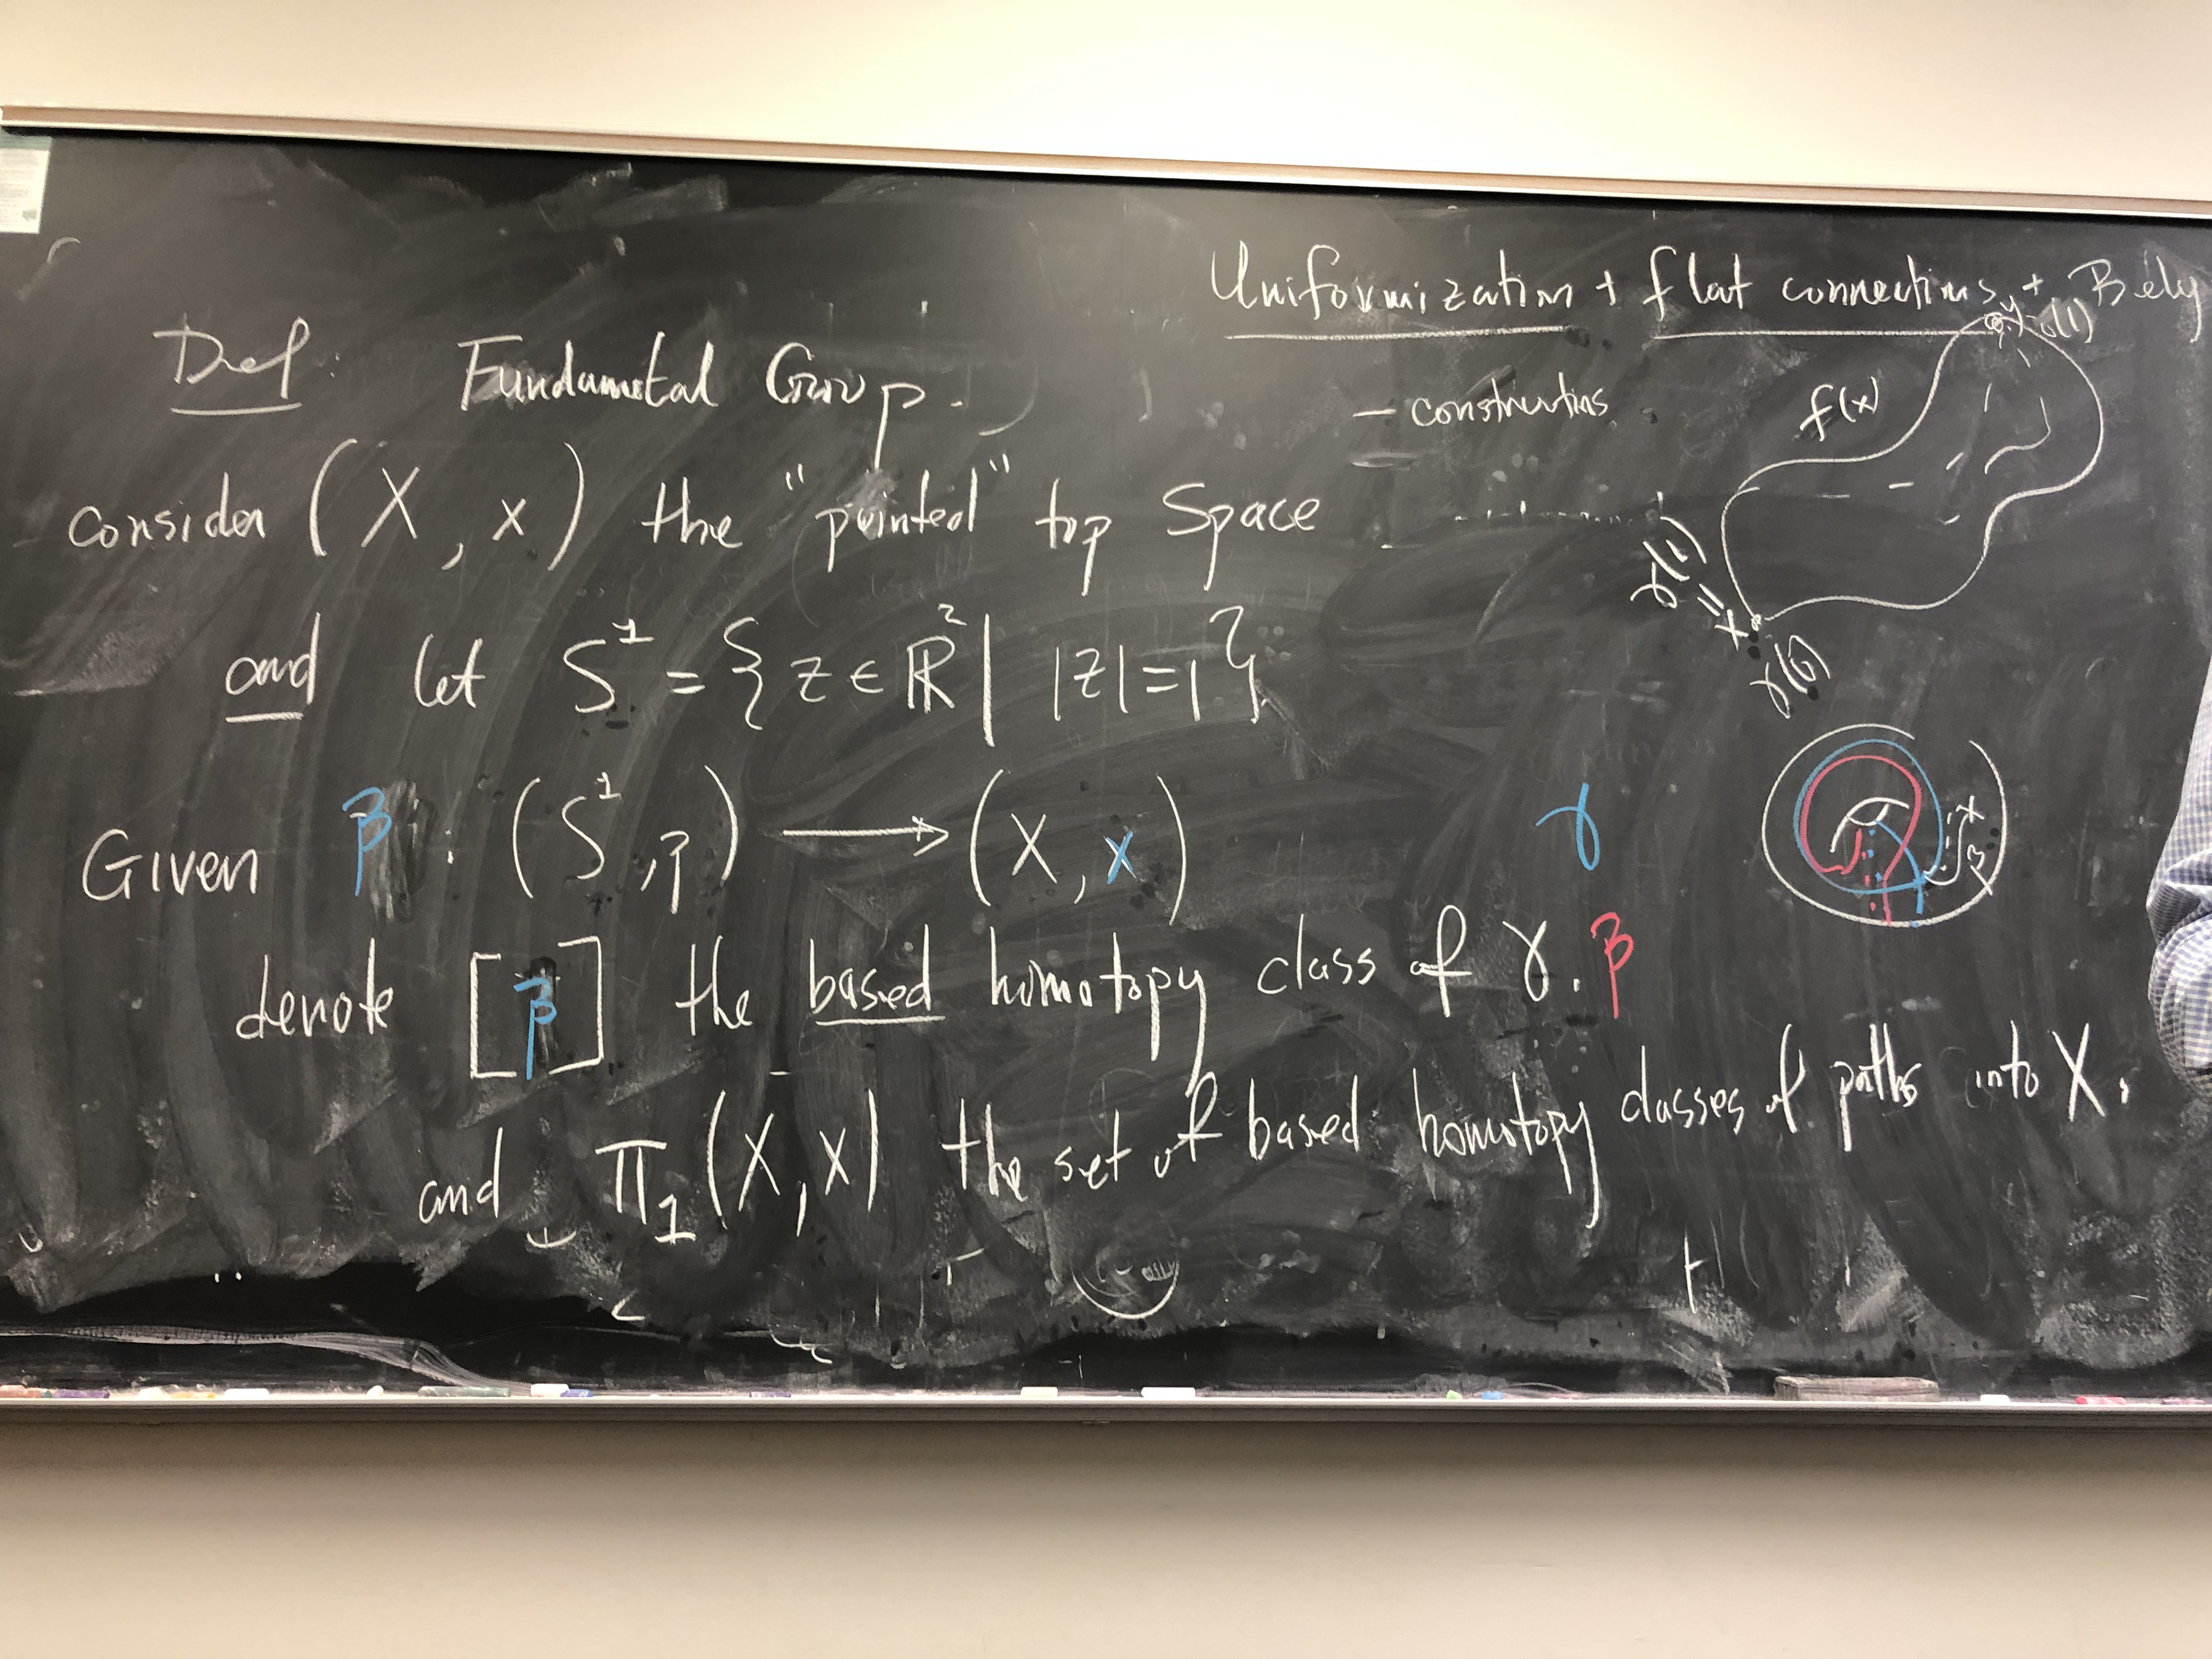 Uniformization + flat connections + Bely
Def: Fundamental Group.
- constructions
f(x)
consider (X, x) the "pointed" top Space
γ(1)
=
x
γ(0)
and let S^1 = { z ∈ ℝ^2 | |z|=1 }
Given β : (S^1, p) ⟶ (X, x)
γ
denote [β] the based homotopy class of γ. β
and π_1 (X, x) the set of based homotopy classes of paths into X.